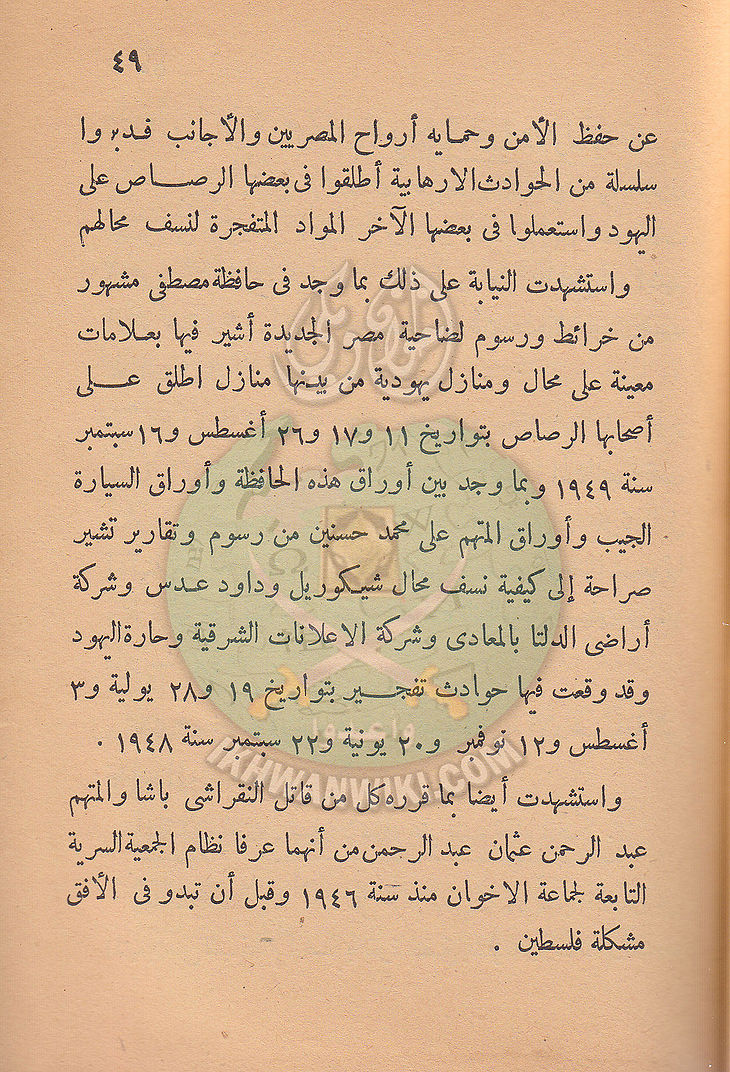 ٤٩
عن حفظ الأمن وحمايه أرواح المصريين والأجانب فدبروا
سلسلة من الحوادث الارهابية أطلقوا فى بعضها الرصاص على
اليهود واستعملوا فى بعضها الآخر المواد المتفجرة لنسف محالهم
واستشهدت النيابة على ذلك بما وجد فى حافظة مصطفى مشهور
من خرائط ورسوم لضاحية مصر الجديدة أشير فيها بعلامات
معينة على محال ومنازل يهودية من بينها منازل اطلق على
أصحابها الرصاص بتواريخ ١١ و١٧ و٢٦ أغسطس و١٦ سبتمبر
سنة ١٩٤٩ وبما وجد بين أوراق هذه الحافظة وأوراق السيارة
الجيب وأوراق المتهم على محمد حسنين من رسوم وتقارير تشير
صراحة إلى كيفية نسف محال شيكوريل وداود عدس وشركة
أراضى الدلتا بالمعادى وشركة الاعلانات الشرقية وحارة اليهود
وقد وقعت فيها حوادث تفجير بتواريخ ١٩ و٢٨ يولية و٣
أغسطس و١٢ نوفمبر و٢٠ يونية و٢٢ سبتمبر سنة ١٩٤٨ .
واستشهدت أيضا بما قرره كل من قاتل النقراشى باشا والمتهم
عبد الرحمن عثمان عبد الرحمن من أنهما عرفا نظام الجمعية السرية
التابعة لجماعة الاخوان منذ سنة ١٩٤٦ وقبل أن تبدو فى الأفق
مشكلة فلسطين .
واعدوا
IKHWANWIKI.COM